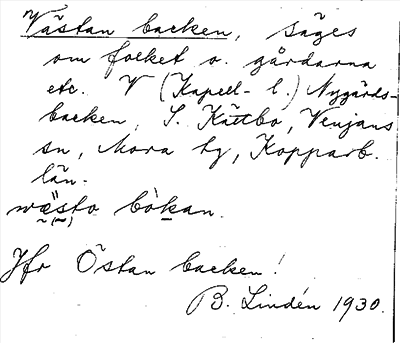 Västan backen, säges
om folket o. gårdarna
etc. V (Kapell- l.) Nygärds-
backen, S. Kättbo, Venjans
sn, Mora tg, Kopparb.
län.
wä̰sto bòkan.
Jfr Östan backen!
B. Lindén 1930.